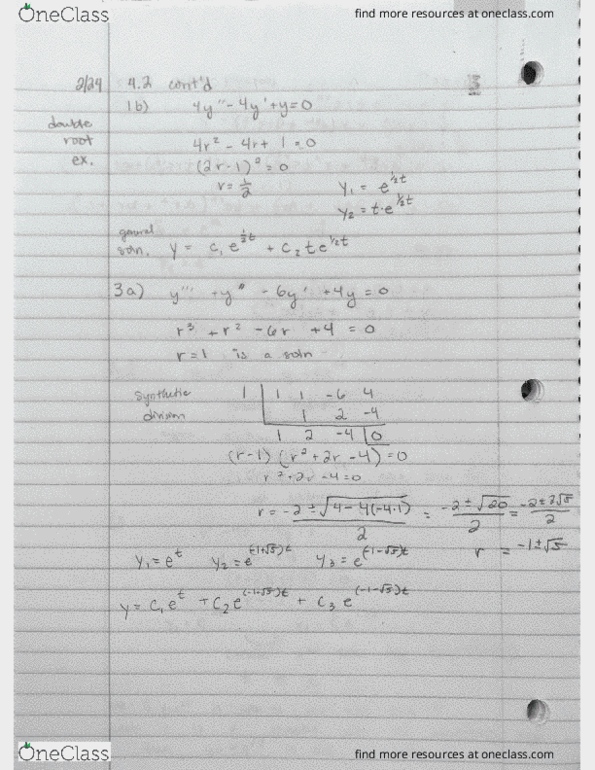 OneClass find more resources at oneclass.com
2/24 4.2 cont'd
1b) 4y'' - 4y' + y = 0
double root ex.
4r² - 4r + 1 = 0
(2r - 1)² = 0
r = 1/2 y₁ = e^(½t)
y₂ = t·e^(½t)
general soln. y = c₁e^(½t) + c₂te^(½t)
3a) y''' + y'' - 6y' + 4y = 0
r³ + r² - 6r + 4 = 0
r = 1 is a soln
Synthetic division 1 | 1 1 -6 4
1 2 -4
1 2 -4 | 0
(r-1)(r² + 2r - 4) = 0
r² + 2r - 4 = 0
r = -2 ± √(4 - 4(-4·1)) / 2 = -2 ± √20 / 2 = -2 ± 2√5 / 2
r = -1 ± √5
y₁ = e^t y₂ = e^((-1+√5)t) y₃ = e^((-1-√5)t)
y = c₁e^t + c₂e^((-1+√5)t) + c₃e^((-1-√5)t)
OneClass find more resources at oneclass.com